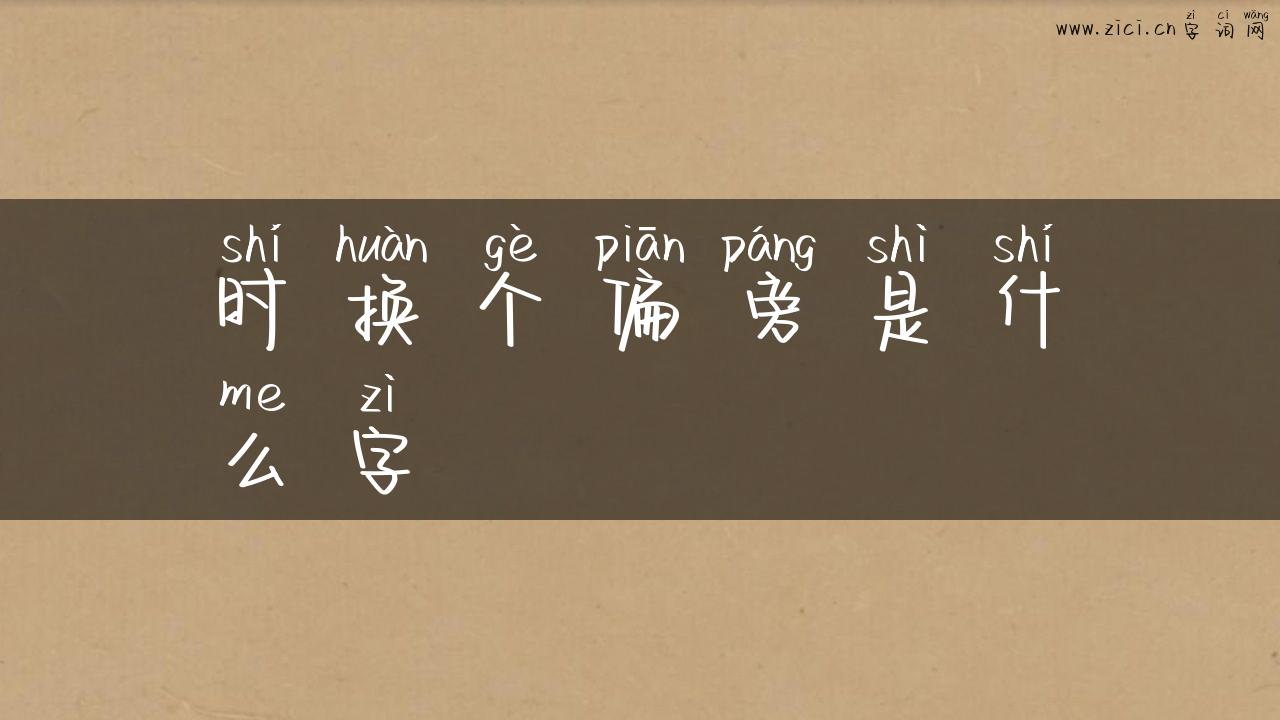 zì cí wǎng
www.zici.cn 字 词 网
shí huàn gè piān páng shì shí
时 换 个 偏 旁 是 什
me zì
么 字